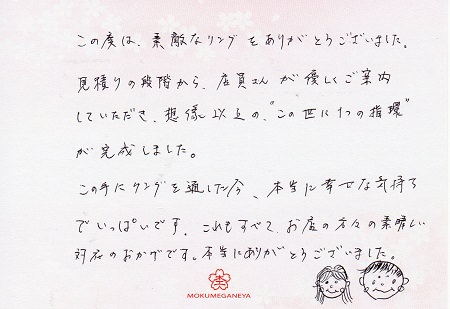 この度は、素敵なリングをありがとうございました。
見積りの段階から、店員さんが優しくご案内
していただき、想像以上の、"この世に1つの指環"
が完成しました。
この手にリングを通した今、本当に幸せな気持ち
でいっぱいです。これもすべて、お店の方々の素晴しい
対応のおかげです。本当にありがとうございました。
MOKUMEGANEYA